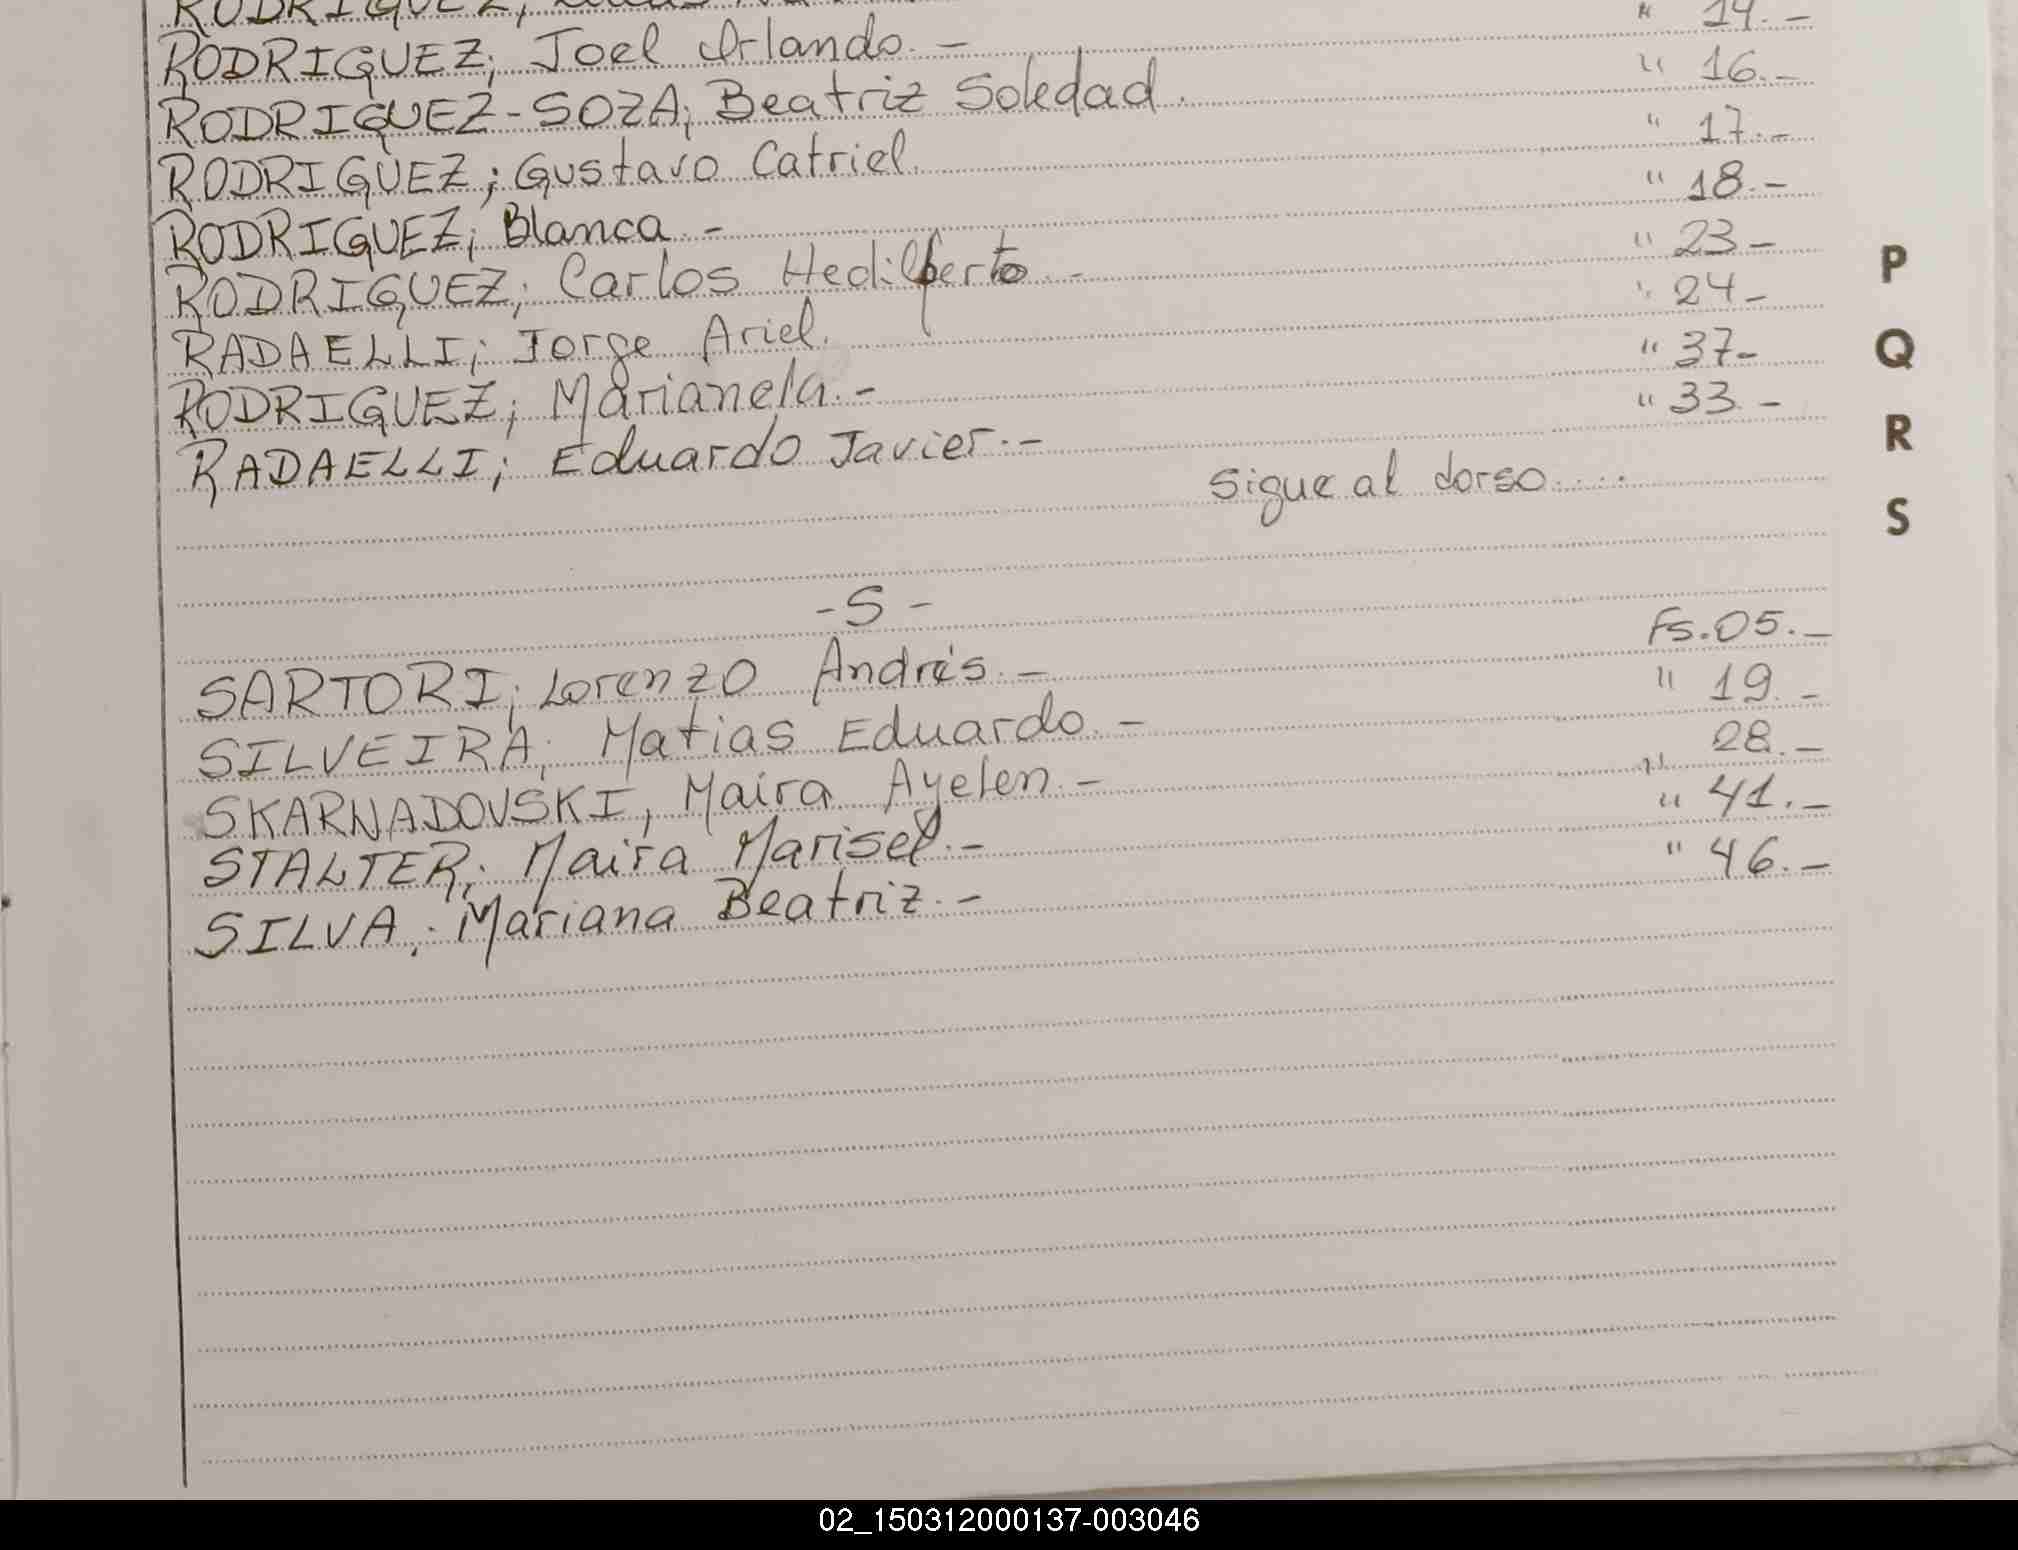 RODRIGUEZ,
RODRIGUEZ; Joel Orlando.- " 14.-
RODRIGUEZ-SOZA; Beatriz Soledad. " 16.-
RODRIGUEZ; Gustavo Catriel. " 17.-
RODRIGUEZ; Blanca.- " 18.-
RODRIGUEZ; Carlos Hedilberto.- " 23-
RADAELLI; Jorge Ariel. " 24-
RODRIGUEZ; Marianela.- " 37-
RADAELLI; Eduardo Javier.- " 33.-
Sigue al dorso.....
-S-
SARTORI; Lorenzo Andrés.- Fs.05.-
SILVEIRA; Matias Eduardo.- " 19.-
SKARNADOVSKI, Maira Ayelen.- " 28.-
STALTER; Maira Marisel.- " 41.-
SILVA; Mariana Beatriz.- " 46.-
P
Q
R
S
02_150312000137-003046